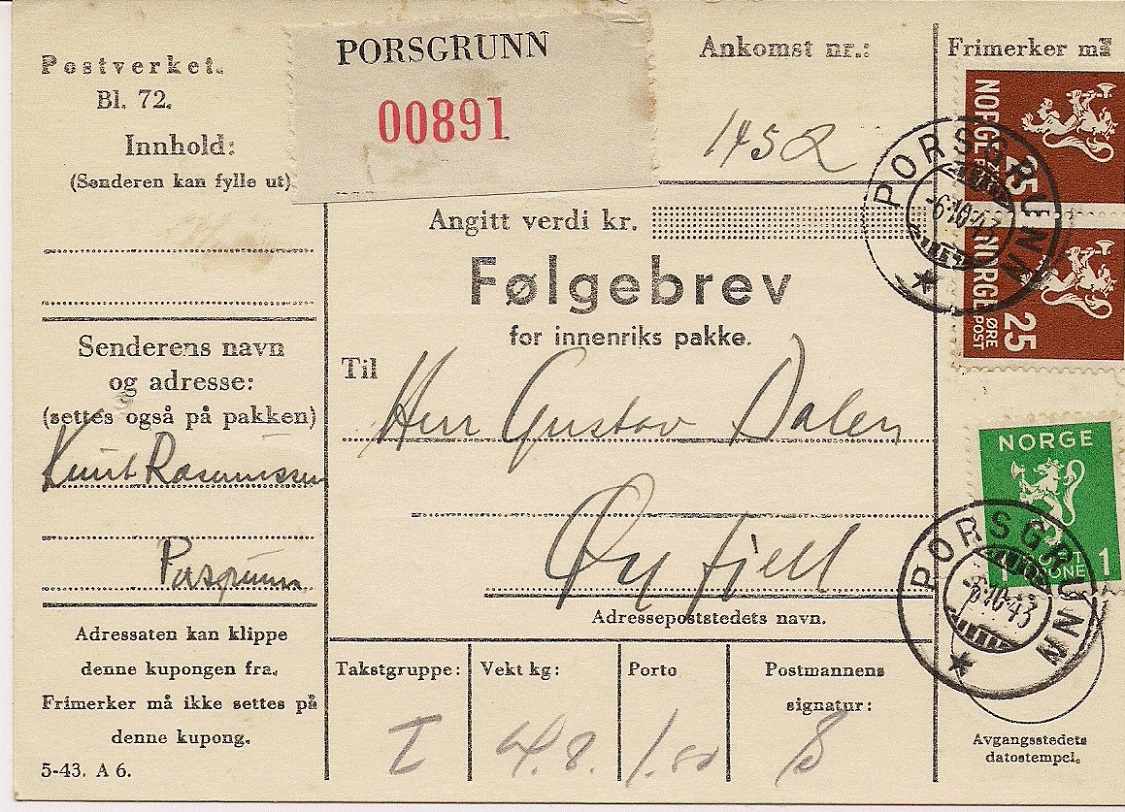 Postverket.
Bl. 72.
Innhold:
(Senderen kan fylle ut)
Senderens navn
og adresse:
(settes også på pakken)
Knut Rasmussen
Porsgrunn
Adressaten kan klippe
denne kupongen fra.
Frimerker må ikke settes på
denne kupong.
5-43. A 6.
PORSGRUNN
00891
Ankomst nr.:
1452
Angitt verdi kr.
Følgebrev
for innenriks pakke.
Til
Herr Gustav Dalen
Øyfjell
Adressepoststedets navn.
Takstgruppe:
I
Vekt kg:
4.8.
Porto
1.50
Postmannens
signatur:
Frimerker må
NORGE
25
PORSGRUNN
-6.10.43
NORGE
25
ØRE
POST
NORGE
1
1
PORSGRUNN
-6.10.43
Avgangsstedets
datostempel.